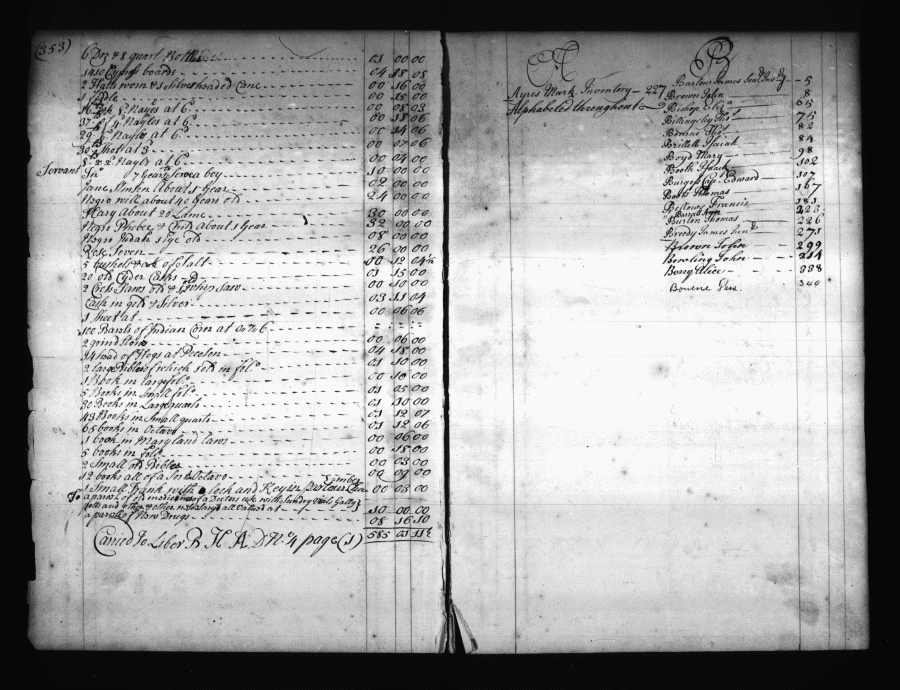 (353)
6 Doz & 8 quart Bottles 01 00 00
1410 Cypress boards 04 18 08
2 Hatts worn & 1 Silver headed Cane 00 16 00
1 00 15 00
Nayles at 6d 00 08 03
Nayles at 6d 00 18 06
29 Nayles at 6d 00 14 06
30 Shot at 3d 00 07 06
8 Nayls at 6d 00 04 00
Servant Jno 7 Years Serve a boy 10 00 00
Jane About 1 Year 02 00 00
Negro will about 40 Years old 24 00 00
Mary About 20 Lame 30 00 00
Negro Phebe & Child About 1 Year 32 00 00
Negro Judah 1 Yr old 08 00 00
26 00 00
5 bushels of Salt 00 12 04½
20 old Cyder Casks 01 15 00
2 Saws old & 1 whip Saw 00 10 00
Cash in gold & Silver 03 11 04
1 Sheet at 00 06 06
100 Barrels of Indian Corn at
2 grind Stones 00 06 00
14 head of Hogs at 04 18 00
2 large Bibles of which 1 old in folo 01 10 00
1 Book in large folo 00 10 00
5 Books in Small folo 01 05 00
30 Books in Large quarto 01 10 00
43 Books in Small quarto 01 12 07
65 books in Octavo 01 12 06
1 book in Maryland Laws 00 06 00
5 books in folo 00 18 00
2 Small old Bibles 00 03 00
12 books all of a Sort Octavo 00 09 00
1 Small Trunk with a Lock and Key in 00 03 00
To a parcel of old medicines of a Doctors with Sundry Vials Gally
potts and other all Valued at 10 00 00
a parcel of New Drugs 08 16 10
585 01 11½
Carried To Liber B H A D No 4 page (1)
A
Ayres Mark Inventory 227
Alphabeted throughout
B
Barlow James 5
Brown John 8
Bishop Eliza 65
Billingsley Tho 75
Bourne Tho 82
Isaiah 84
Boyd Mary 98
Booth Isaac 102
Burgess Edward 107
Thomas 167
Bellows Francis 181
223
Burton Thomas 226
James Senr 271
Brown John 299
Bowling John 314
Berry Alice 338
Bourne 344